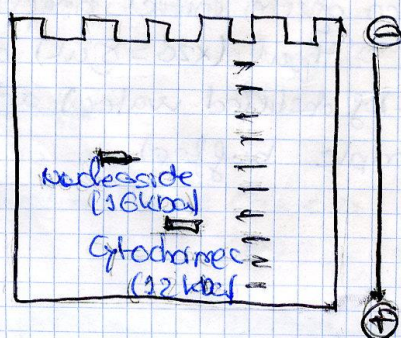 ⊖
Nucleoside
(16 kDa)
Cytochrome c
(12 kDa)
⊕